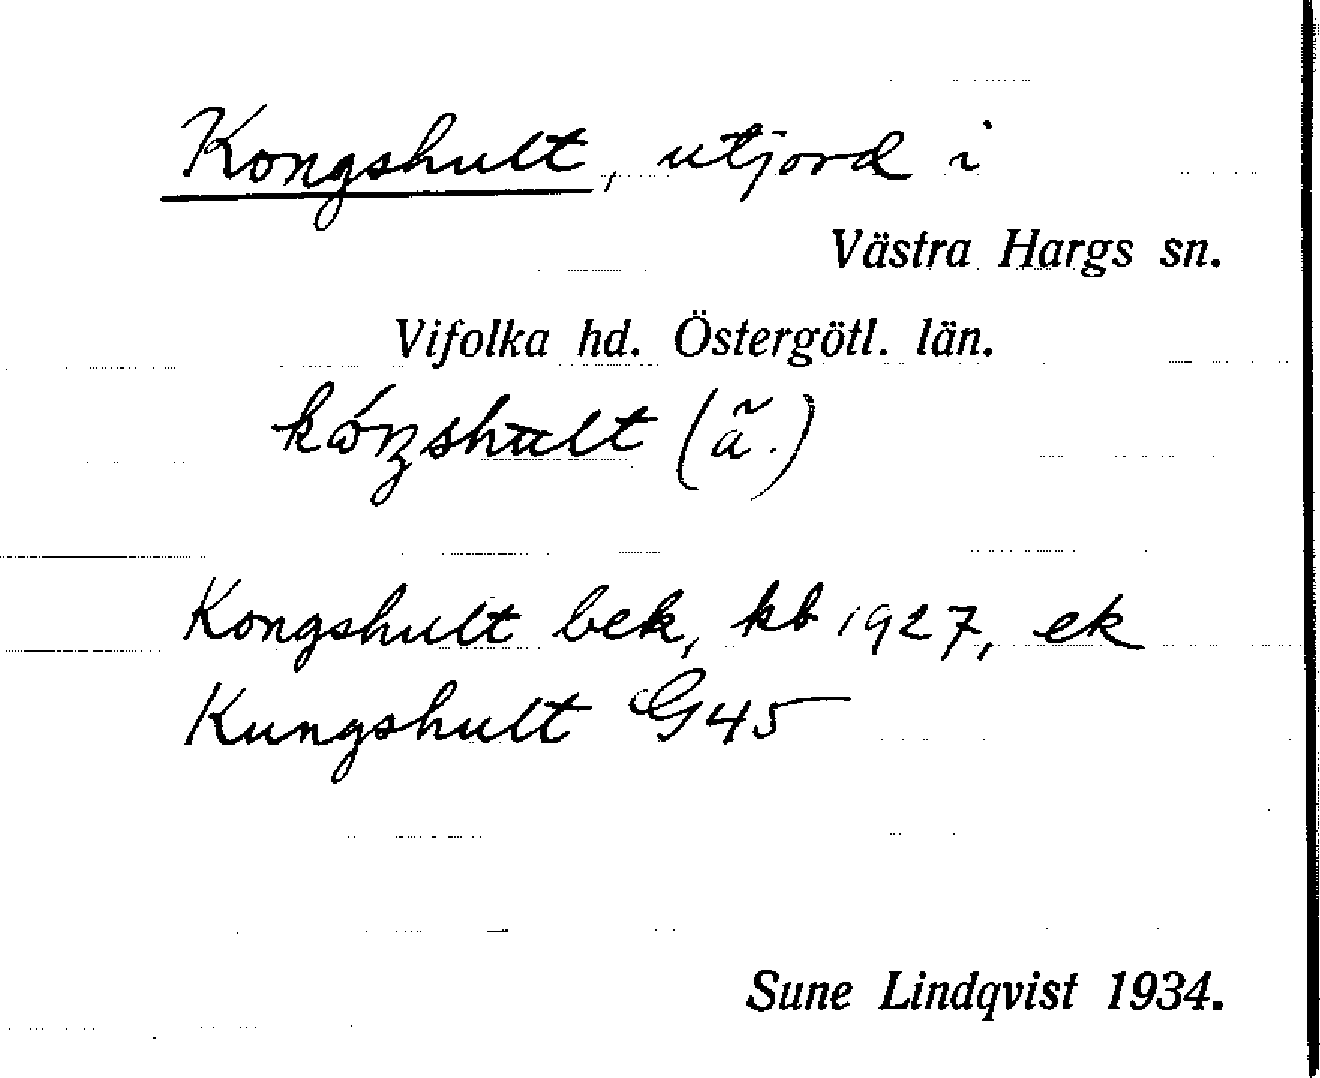 Kongshult, utjord i
Västra Hargs sn.
Vifolka hd. Östergötl. län.
(ã.)
Kongshult bek, kb 1927, ek
Kungshult G45
Sune Lindqvist 1934.